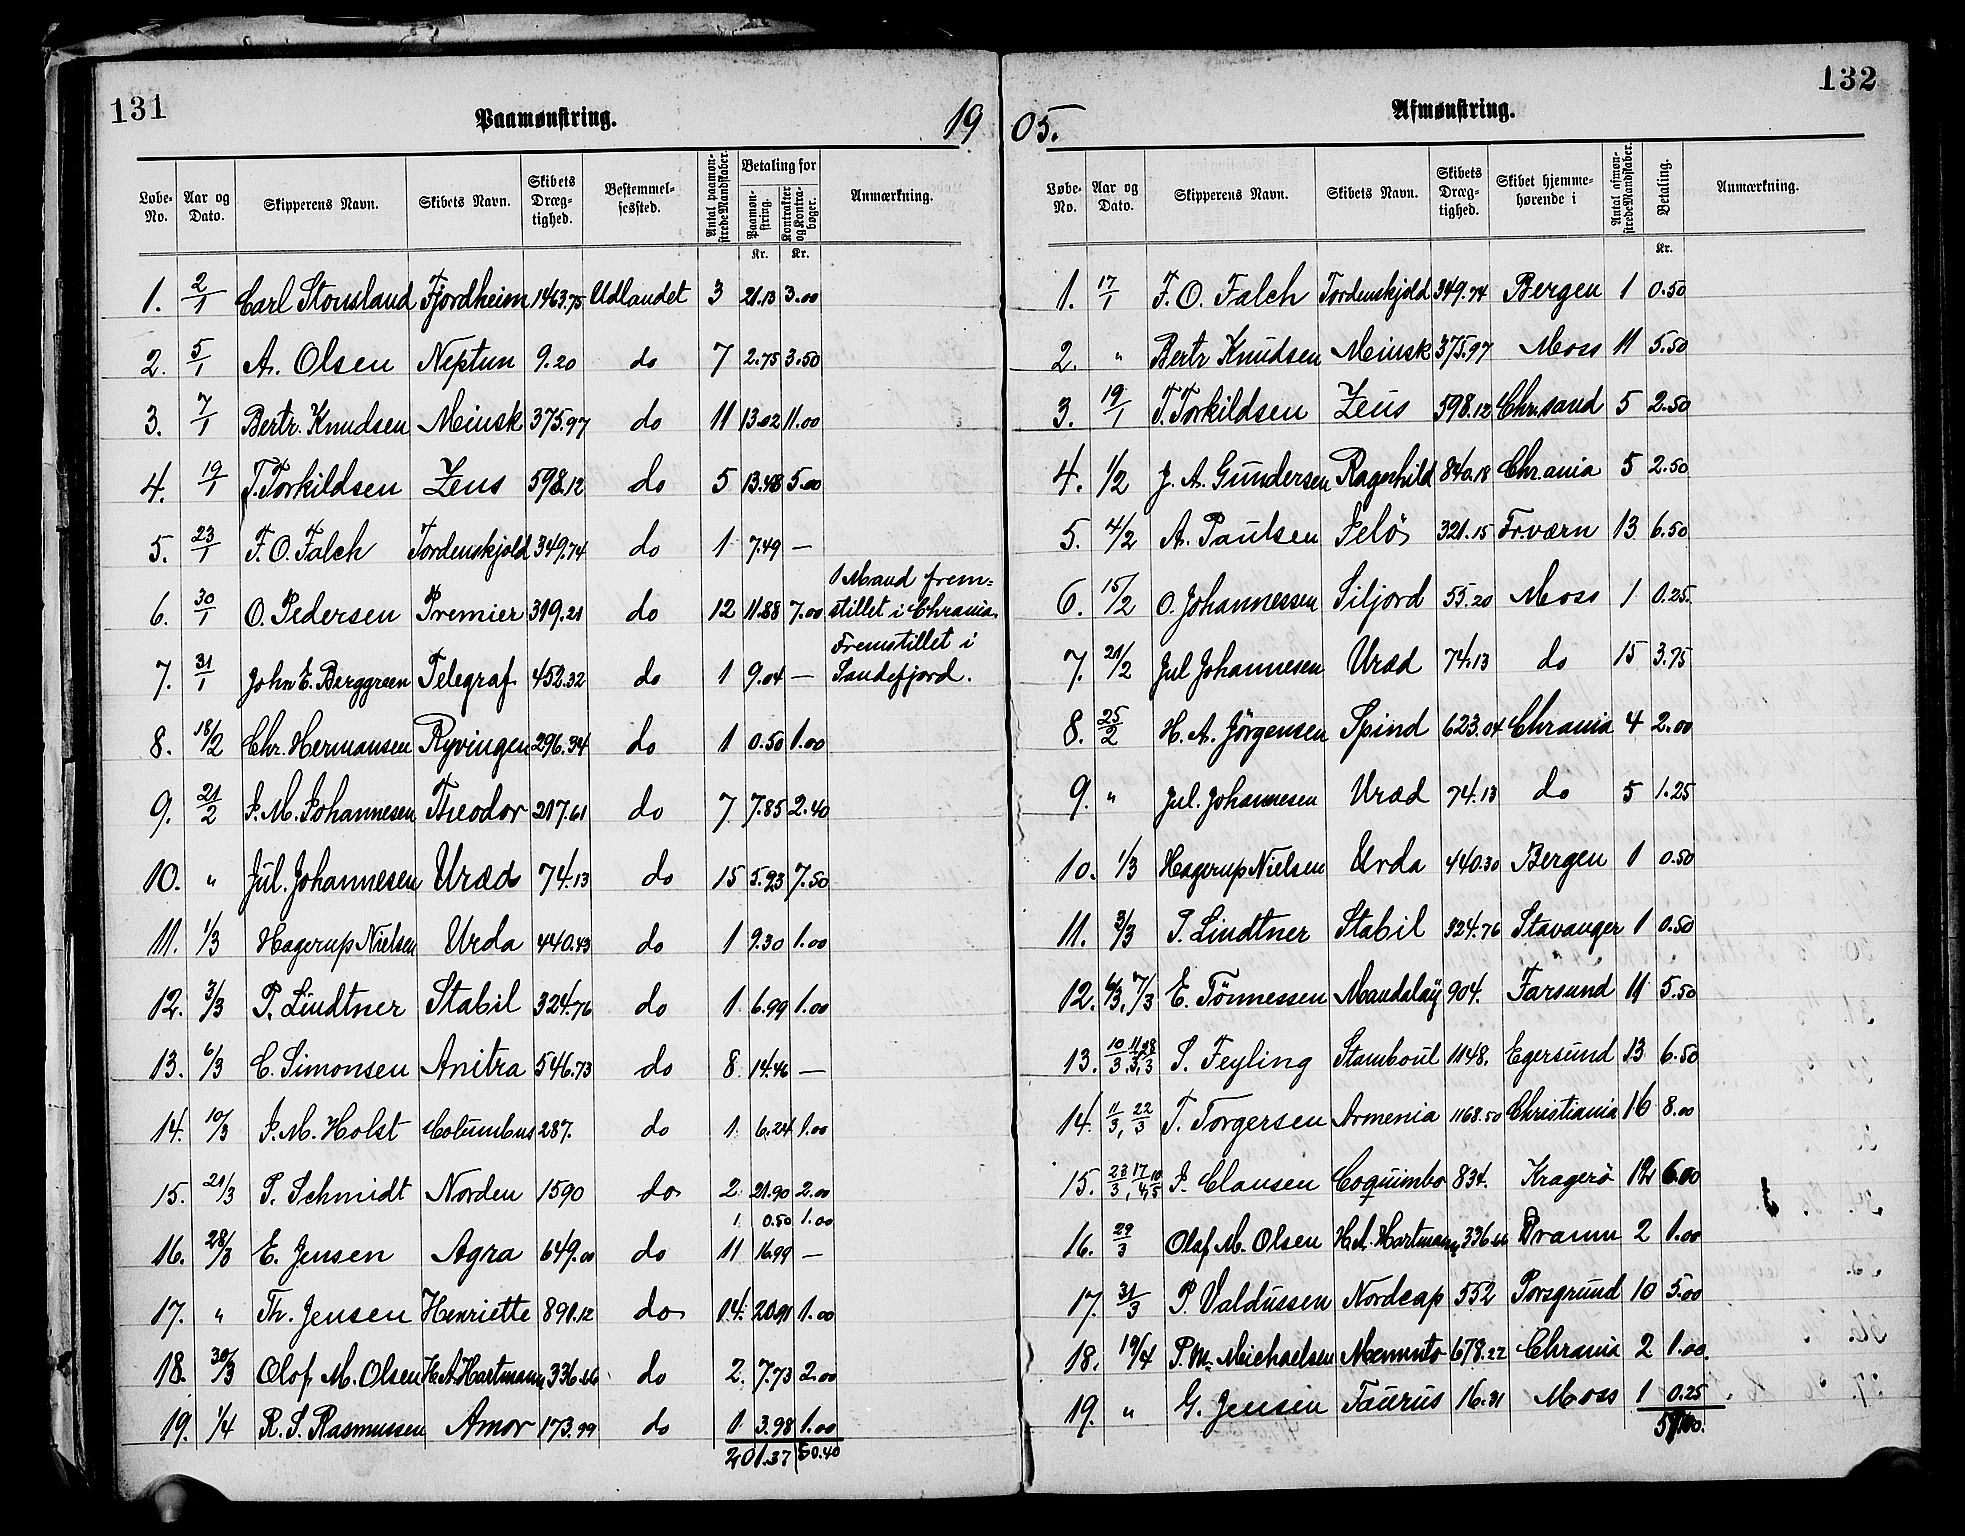 131
Paamønstring.
19
Løbe-No. Aar og Dato. Skipperens Navn. Skibets Navn. Skibets Dræg-tighed. Bestemmel-sessted. Antal paamøn-strede Mandskaber. Betaling for Paamøn-string. Kontrakter og Kontra-bøger. Anmærkning.
Kr. Kr.
1. 2/1 Carl Stousland Fjordheim 1463.75 Udlandet 3 21.13 3.00
2. 5/1 A. Olsen Neptun 9.20 do 7 2.75 3.50
3. 7/1 Bertr. Knudsen Meinsk 375.97 do 11 13.02 11.00
4. 19/1 T. Torkildsen Zeus 598.12 do 5 13.48 5.00
5. 23/1 F. O. Falch Tordenskjold 349.74 do 1 7.49 —
6. 30/1 O. Pedersen Premier 319.21 do 12 11.88 7.00 1 Mand frem-
stillet i Chrania.
7. 31/1 John E. Berggreen Telegraf 452.32 do 1 9.04 — Fremstillet i
Sandefjord.
8. 18/2 Chr. Hermansen Ryvingen 296.34 do 1 0.50 1.00
9. 21/2 J. M. Johannesen Theodor 217.61 do 7 7.85 2.40
10. " Jul. Johannesen Uræd 74.13 do 15 5.93 7.50
11. 1/3 Hagerup Nielsen Urda 440.43 do 1 9.30 1.00
12. 3/3 P. Lindtner Stabil 324.76 do 1 6.99 1.00
13. 6/3 C. Simonsen Anitra 546.73 do 8 14.46 —
14. 10/3 J. M. Holst Columbus 287. do 1 6.24 1.00
15. 21/3 P. Schmidt Norden 1590 do 2 21.90 2.00
1 0.50 1.00
16. 28/3 E. Jensen Agra 649.00 do 11 16.99 —
17. " Th. Jensen Henriette 891.12 do 14 20.91 1.00
18. 30/3 Olof M. Olsen H.A. Hartmann 336.66 do 2. 7.73 2.00
19. 1/4 R. S. Rasmussen Amor 173.99 do 1 3.98 1.00
201.37 50.40
132
Afmønstring.
05.
Løbe-No. Aar og Dato. Skipperens Navn. Skibets Navn. Skibets Dræg-tighed. Skibet hjemme-hørende i Antal afmøn-strede Mandskaber. Betaling. Anmærkning.
Kr.
1. 17/1 F. O. Falch Tordenskjold 349.74 Bergen 1 0.50
2. " Bertr Knudsen Meinsk 375.97 Moss 11 5.50
3. 19/1 T. Torkildsen Zeus 598.12 Chr.sand 5 2.50
4. 1/2 J. A. Gundersen Ragnhild 840.18 Chrania 5 2.50
5. 4/2 A. Paulsen Jelö 321.15 Fr.værn 13 6.50
6. 15/2 O. Johannessen Siljord 55.20 Moss 1 0.25
7. 21/2 Jul Johannesen Uræd 74.13 do 15 3.75
8. 25/2 H. A. Jörgensen Spind 623.04 Chrania 4 2.00
9. " Jul. Johannesen Uræd 74.13 do 5 1.25
10. 1/3 Hagerup Nielsen Urda 440.30 Bergen 1 0.50
11. 3/3 P. Lindtner Stabil 324.76 Stavanger 1 0.50
12. 6/3, 7/3 E. Tönnessen Mandalay 904. Farsund 11 5.50
13. 10/3 11/3, 28/3 S. Feyling Stamboul 1148. Egersund 13 6.50
14. 11/3, 22/3 T. Torgersen Armenia 1168.50 Christiania 16 8.00
15. 23/3, 17/4, 10/5 J. Clausen Coquimbo 834. Kragerö 12 6.00
16. 29/3 Olaf M. Olsen H.A. Hartmann 336.66 Dramm 2 1.00
17. 31/3 P. Valdussen Nordcap 552 Porsgrund 10 5.00
18. 19/4 P. M. Michaelsen Memento 678.22 Chrania 2 1.00.
19. " G. Jensen Taurus 16.31 Moss 1 0.25